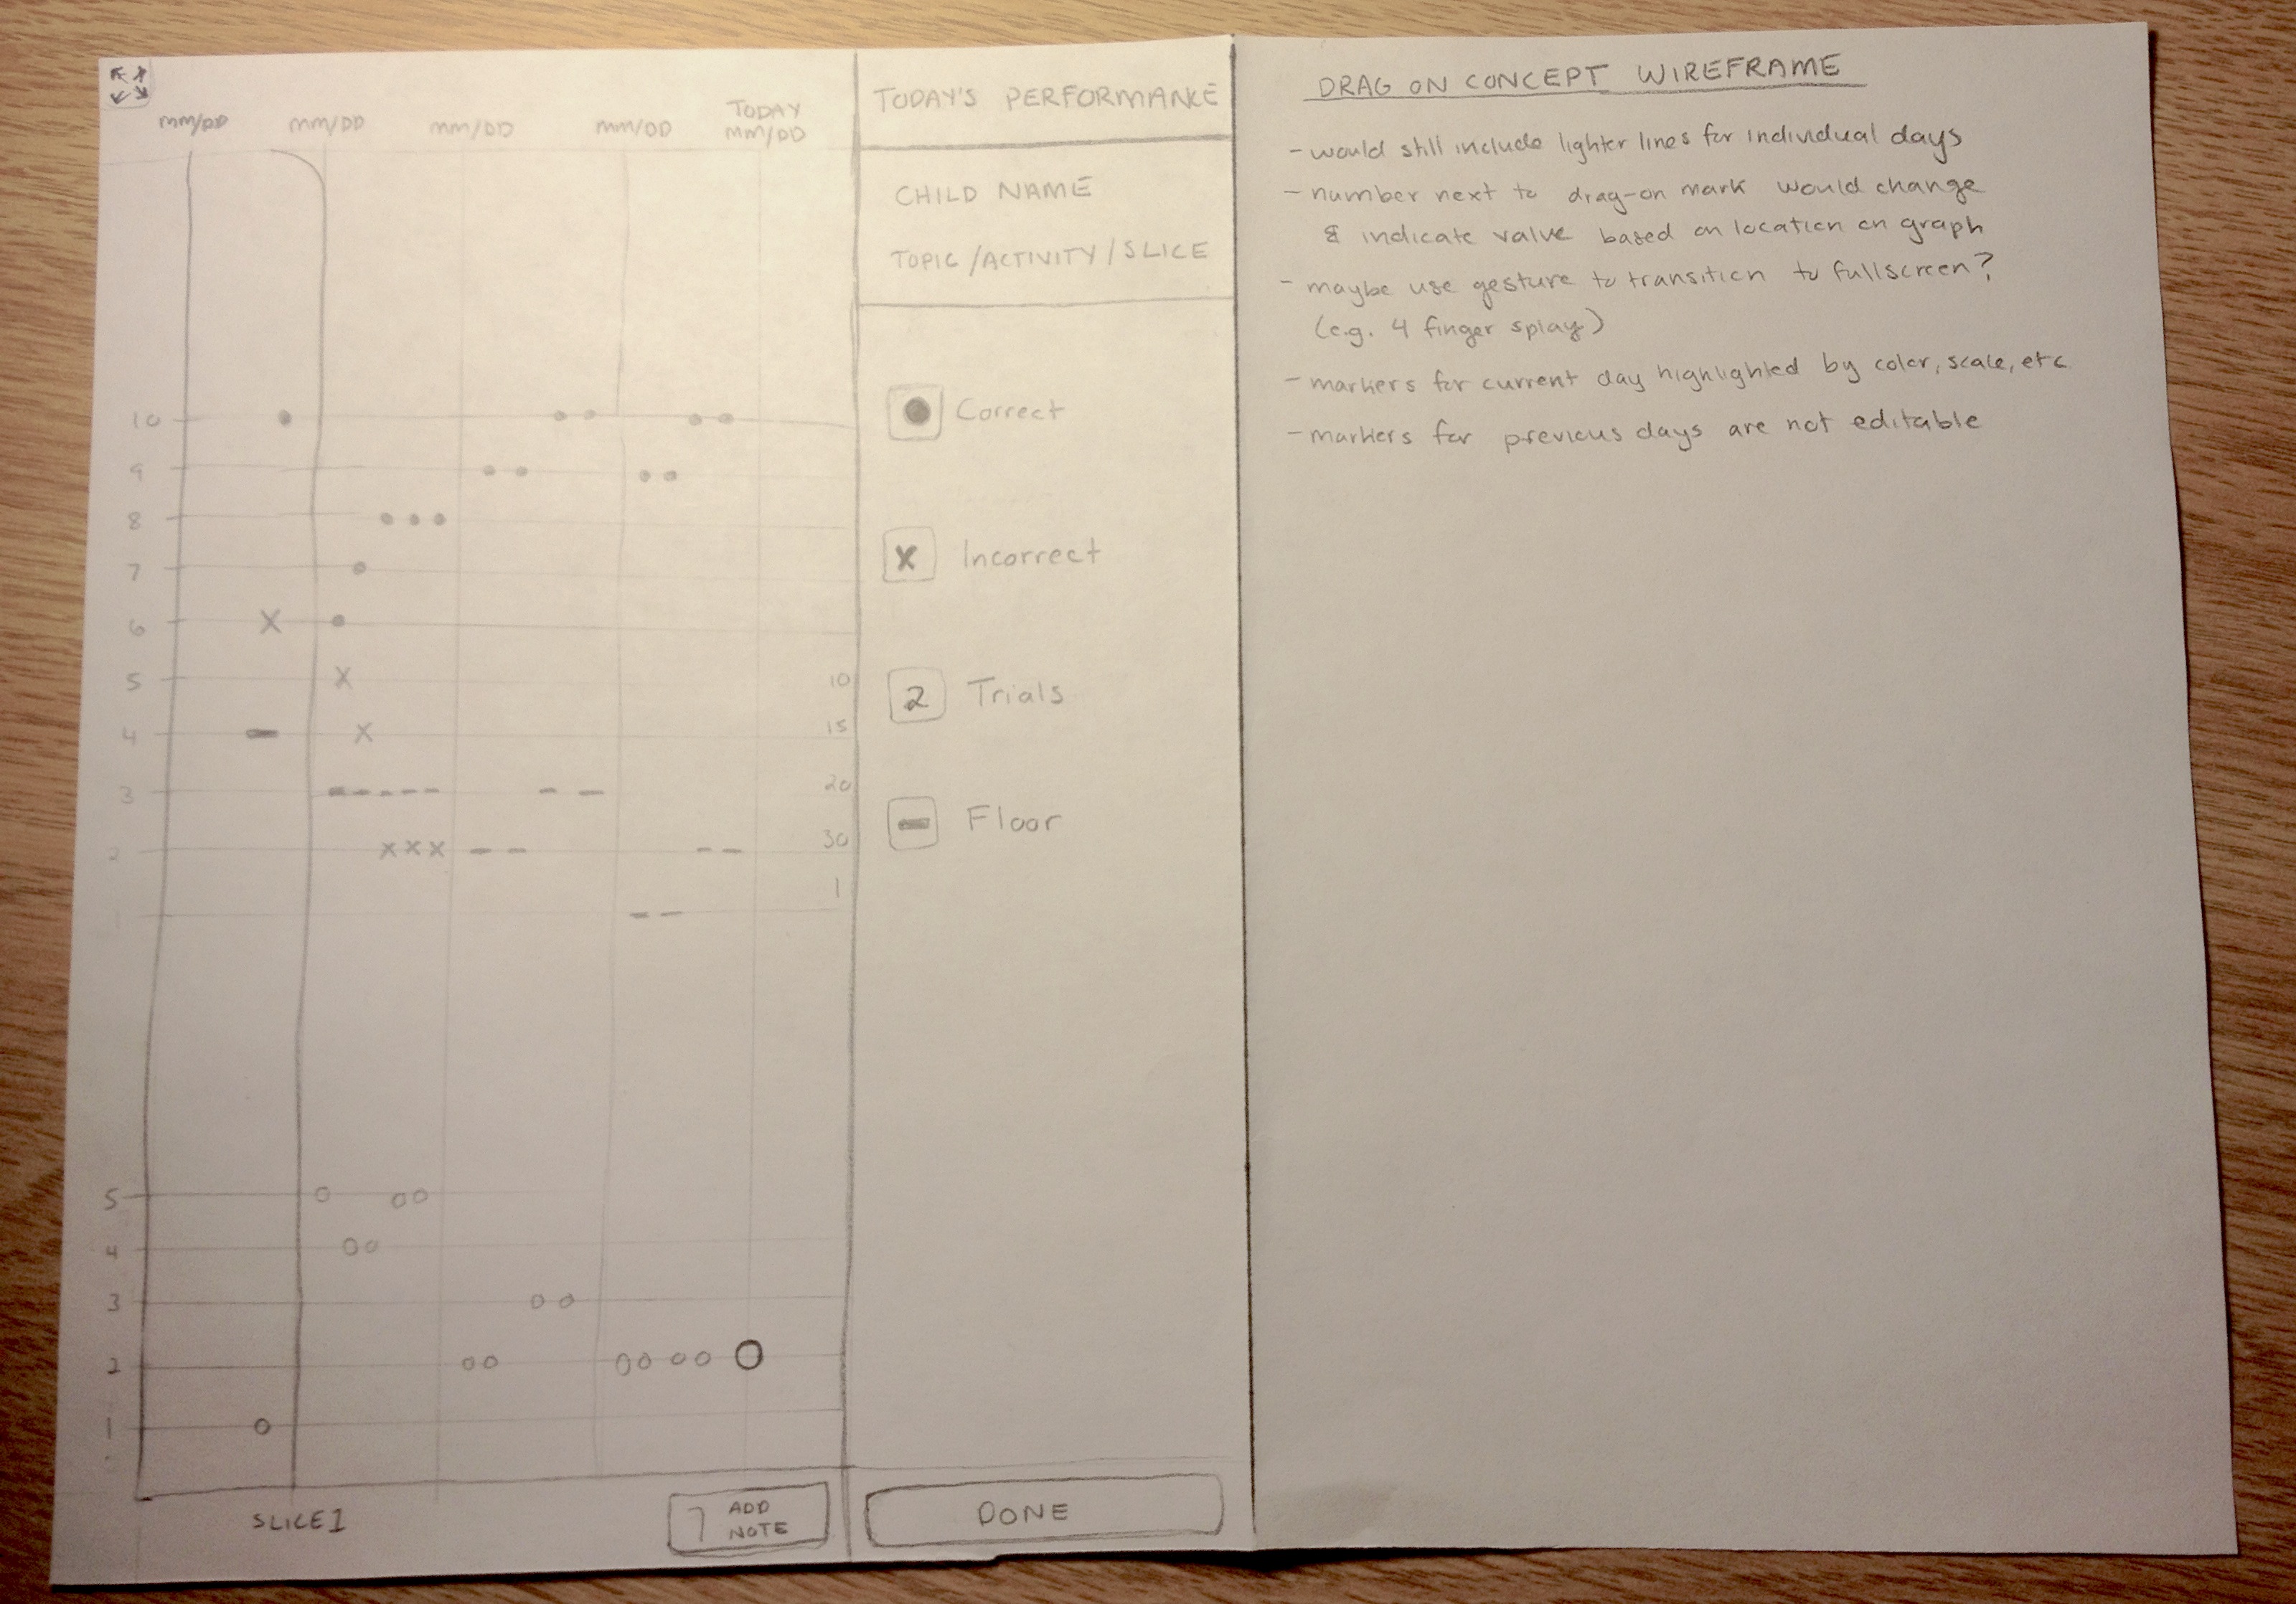 mm/DD mm/DD mm/DD mm/DD TODAY
mm/DD
10
9
8
7
6
5
4
3
2
1
10
15
20
30
1
5
4
3
2
1
SLICE 1
ADD
NOTE
TODAY'S PERFORMANCE
CHILD NAME
TOPIC/ACTIVITY/SLICE
Correct
X Incorrect
2 Trials
Floor
DONE
DRAG ON CONCEPT WIREFRAME
- would still include lighter lines for individual days
- number next to drag-on mark would change
& indicate value based on location on graph
- maybe use gesture to transition to fullscreen?
(e.g. 4 finger splay)
- markers for current day highlighted by color, scale, etc
- markers for previous days are not editable